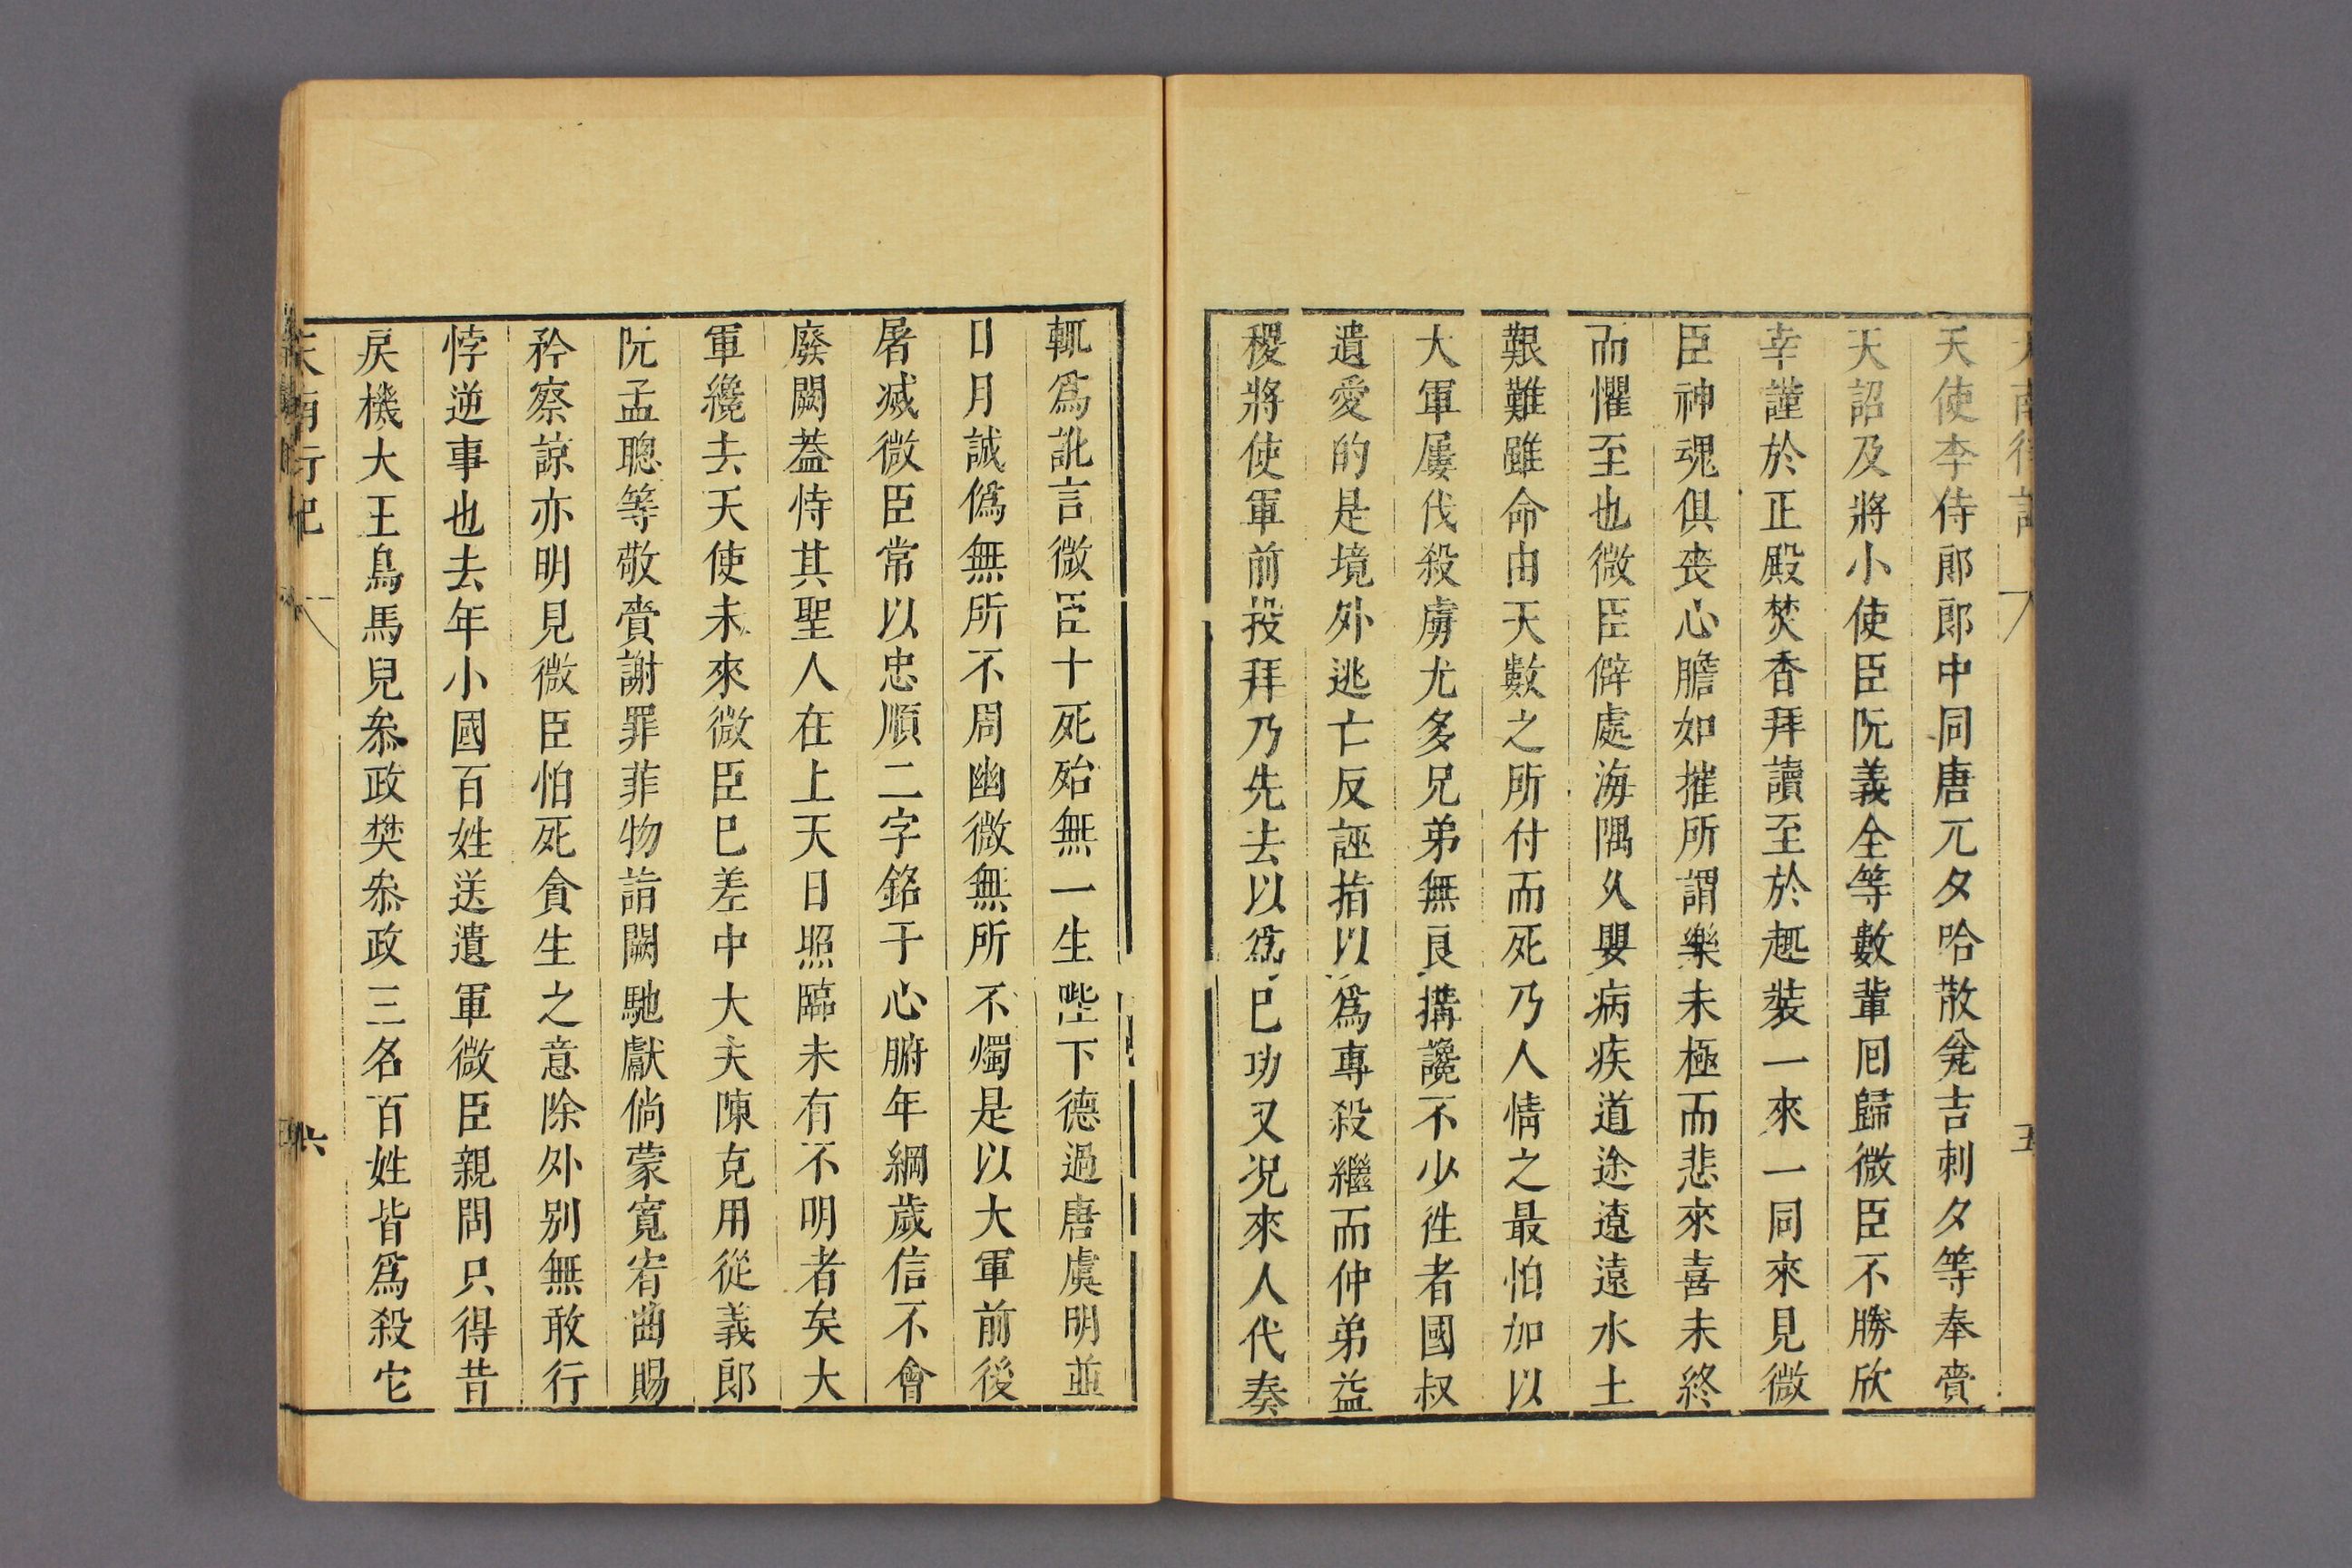 天使李侍郎郎中同唐兀歹哈散瓮吉剌歹等奉賫
天詔及將小使臣阮義全等數輩囘歸微臣不勝欣
幸謹於正殿焚香拜讀至於趣裝一來一同來見微
臣神魂俱喪心膽如摧所謂樂未極而悲來喜未終
而懼至也微臣僻處海隅久嬰病疾道途遼遠水土
艱難雖命由天數之所付而死乃人情之最怕加以
大軍屢伐殺虜尤多兄弟無良搆讒不少徃者國叔
遺愛的是境外逃亡反誣指以爲專殺繼而仲弟益
稷將使軍前投拜乃先去以爲巳功又况來人代奏
輒爲訛言微臣十死殆無一生陛下德過唐虞明並
日月誠僞無所不周幽微無所不燭是以大軍前後
屠滅微臣常以忠順二字銘于心腑年綱歲信不會
廢闕葢恃其聖人在上天日照臨未有不明者矣大
軍纔去天使未來微臣巳差中大夫陳克用從義郎
阮孟聰等敬賫謝罪菲物詣闕馳獻倘蒙寬宥曲賜
矜察諒亦明見微臣怕死貪生之意除外别無敢行
悖逆事也去年小國百姓送遣軍微臣親問只得昔
戾機大王烏馬兒叅政樊叅政三名百姓皆爲殺它
天南行記
六
五